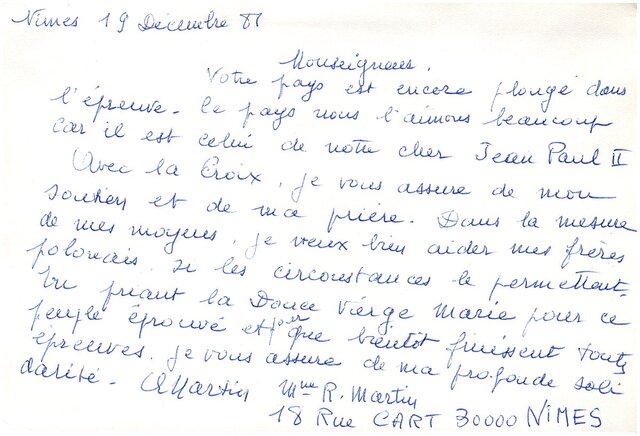 Nimes 19 Décembre 81
Monseigneur,
Votre pays est encore plongé dans
l'épreuve. Ce pays nous l'aimons beaucoup
car il est celui de notre cher Jean Paul II
Avec la Croix, je vous assure de mon
soutien et de ma prière. Dans la mesure
de mes moyens, je veux bien aider mes frères
polonais si les circonstances le permettent.
En priant la Douce Vierge Marie pour ce
peuple éprouvé et pour que bientôt finissent toutes
épreuves, je vous assure de ma profonde soli
darité - Martin Mme R. Martin
18 Rue CART 30000 NIMES